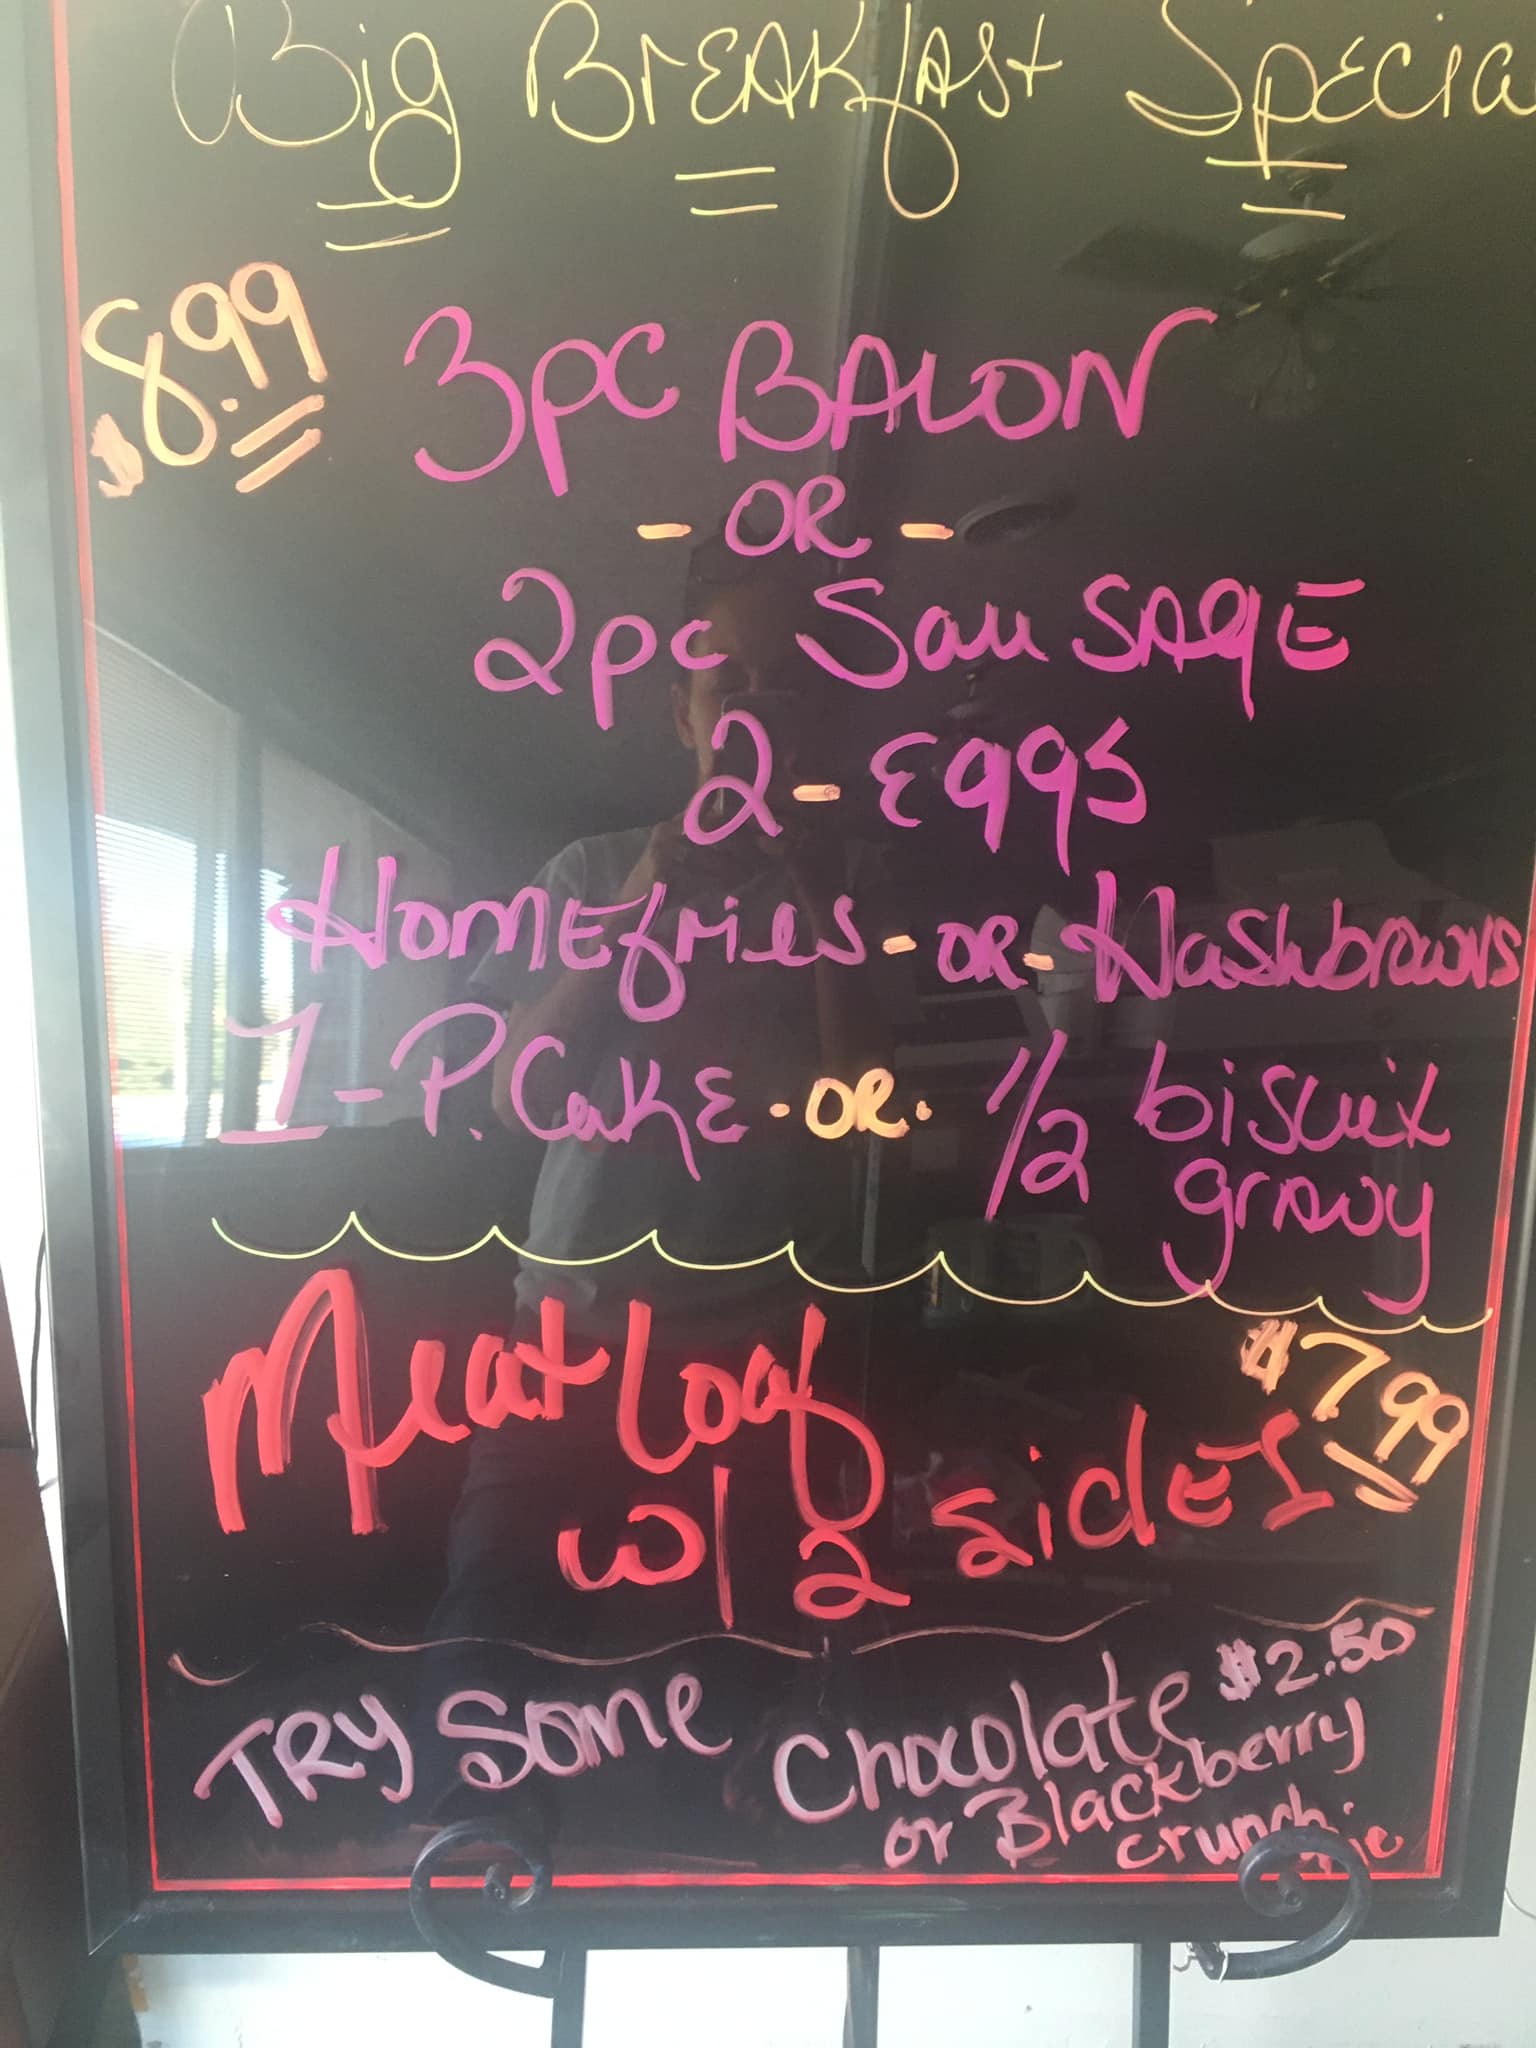 Big Breakfast Specia
$8.99
3pc BACON
- OR -
2pc Sausage
2 - Eggs
Homefries - OR - Hashbrowns
1 - P. Cake - OR - 1/2 biscuit
gravy
Meatloaf $7.99
w/ 2 sides
Try Some Chocolate $2.50
or Blackberry
crunch pie